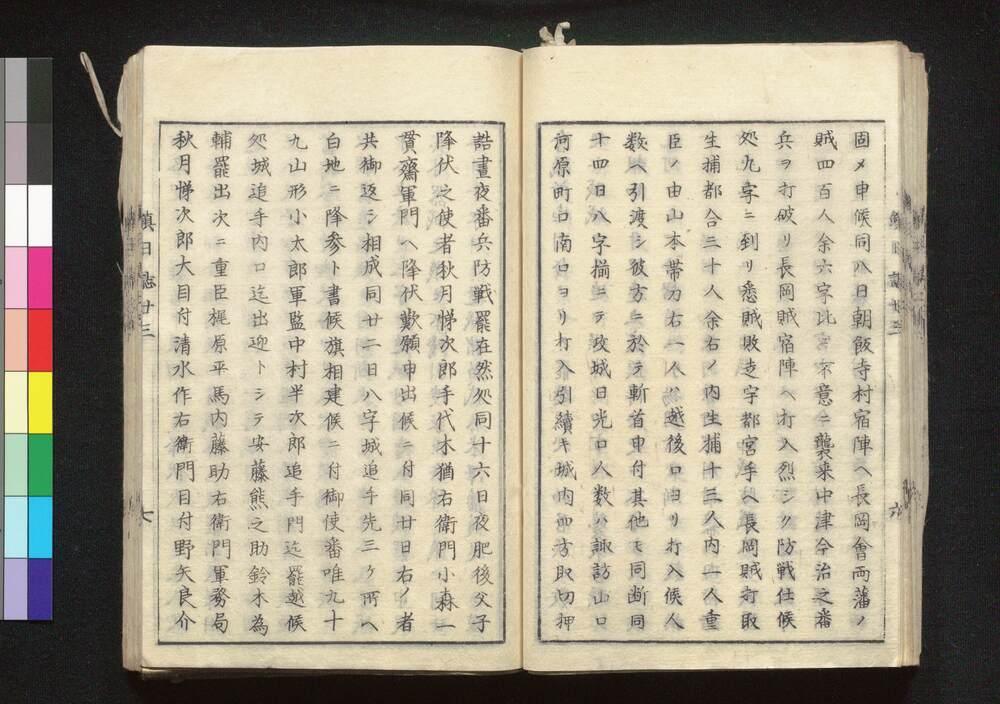 固メ申候同八日朝飯寺村宿陣ヘ長岡會両藩ノ
賊四百人余六字比ニ不意ニ襲来中津今治之番
兵ヲ打破リ長岡賊宿陣ヘ打入烈シク防戦仕候
処九字ニ到リ悉賊敗走宇都宮手ヘ長岡賊打取
生捕都合三十人余右ノ内生捕十三人内一人重
臣ノ由山本帯刀右一人ハ越後口ヨリ打入候人
数ヘ引渡シ彼方ニ於テ斬首申付其他モ同断同
十四日八字揃ニテ攻城日光口人数ハ諏訪山口
河原町口南口ヨリ打入引續キ城内四方取切押
詰晝夜番兵防戦罷在然処同十六日夜肥後父子
降伏之使者秋月悌次郎手代木猶右衛門小森一
貫齋軍門ヘ降伏歎願申出候ニ付同廿日右ノ者
共御返シ相成同廿二日八字城追手先三ケ所ヘ
白地ニ降参ト書候旗相建候ニ付御使番唯九十
九山形小太郎軍監中村半次郎追手門迄罷越候
処城追手内口迄出迎トシテ安藤熊之助鈴木為
輔罷出次ニ重臣梶原平馬内藤助右衛門軍務局
秋月悌次郎大目付清水作右衛門目付野矢良介
鎮日誌廿三
七